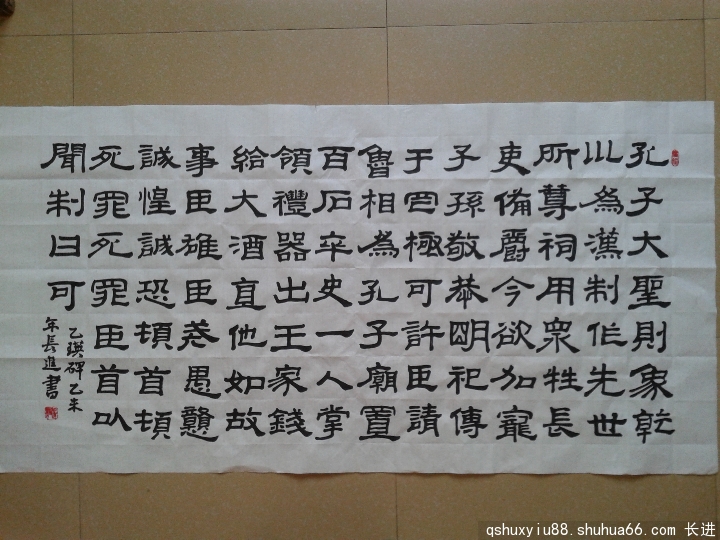 孔子大聖則象乾
巛為漢制作先世
所尊祠用衆牲長
吏備爵今欲加寵
子孫敬恭明祀傳
于罔極可許臣請
魯相為孔子廟置
百石卒史一人掌
領禮器出王家錢
給大酒直他如故
事臣雄臣戒愚戇
誠惶誠恐頓首頓
死罪死罪臣首以
聞制曰可
乙瑛碑乙未
年長進書
qshuxyiu88.shuhua66.com 长进